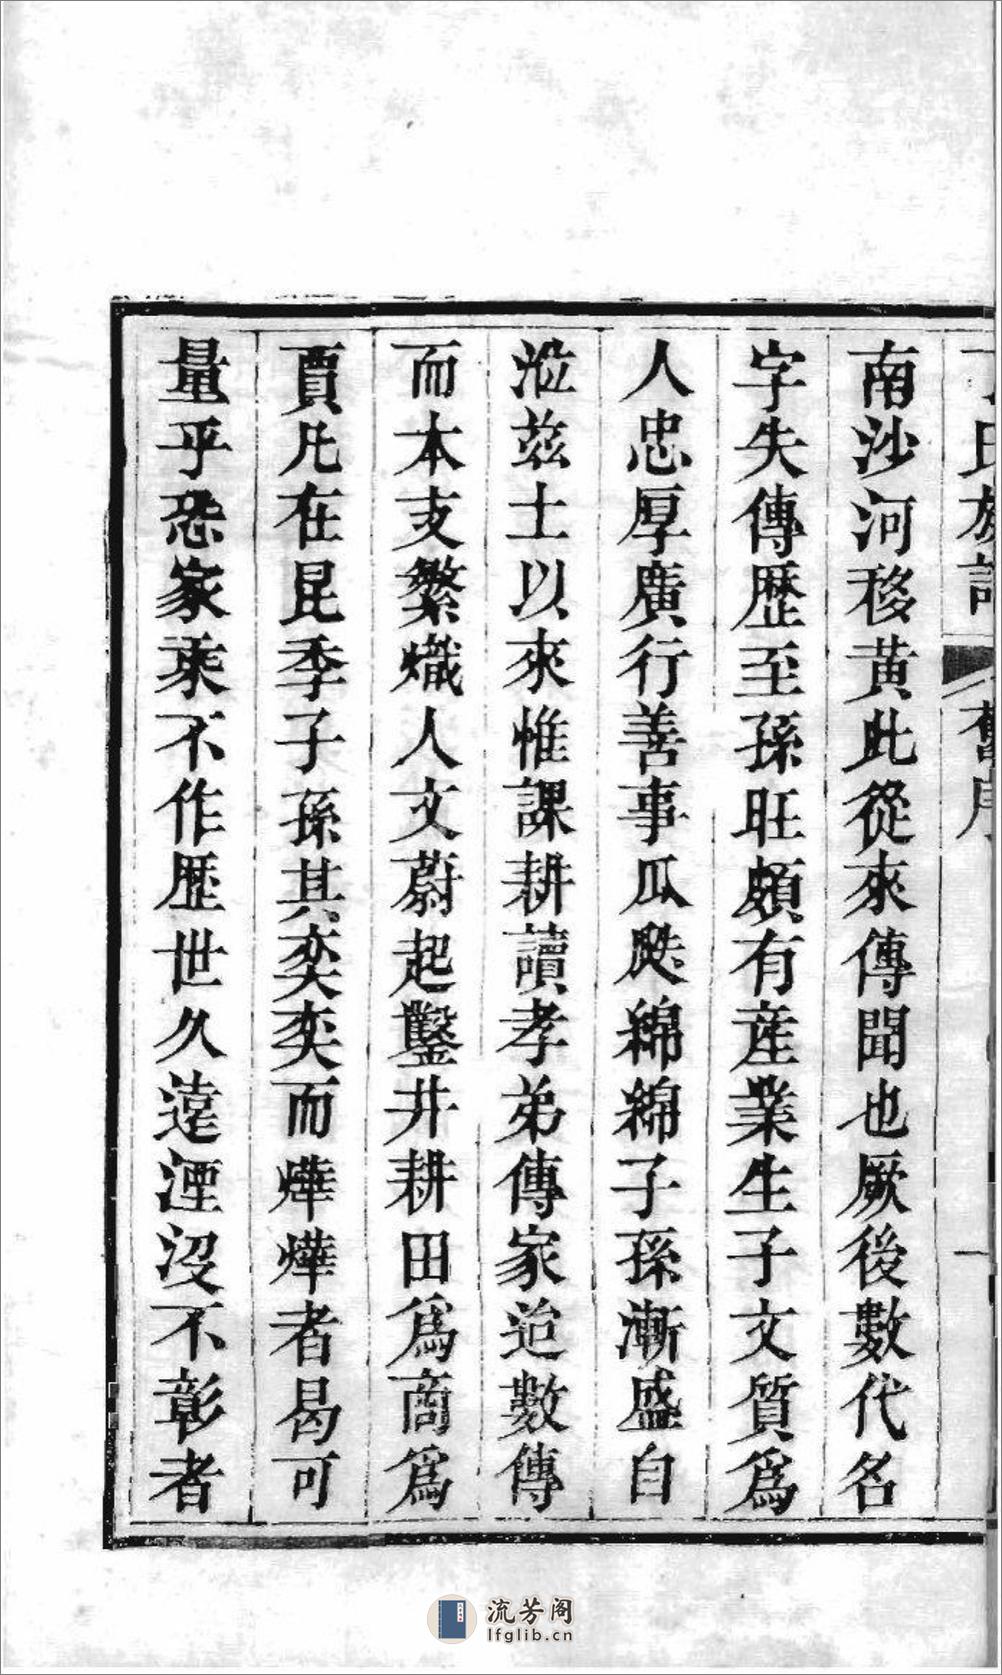 氏族譜 舊序 一
南沙河移黄此從來傳聞也厥後數代名
字失傳歴至孫旺頗有產業生子文質爲
人忠厚廣行善事瓜瓞綿綿子孫漸盛自
涖兹土以來惟課耕讀孝弟傳家迨數傳
而本支繁熾人文蔚起鑿井耕田爲商爲
賈凡在昆季子孫其奕奕而燁燁者曷可
量乎恐家乘不作歴世久遠湮沒不彰者
流芳阁
lfglib.cn